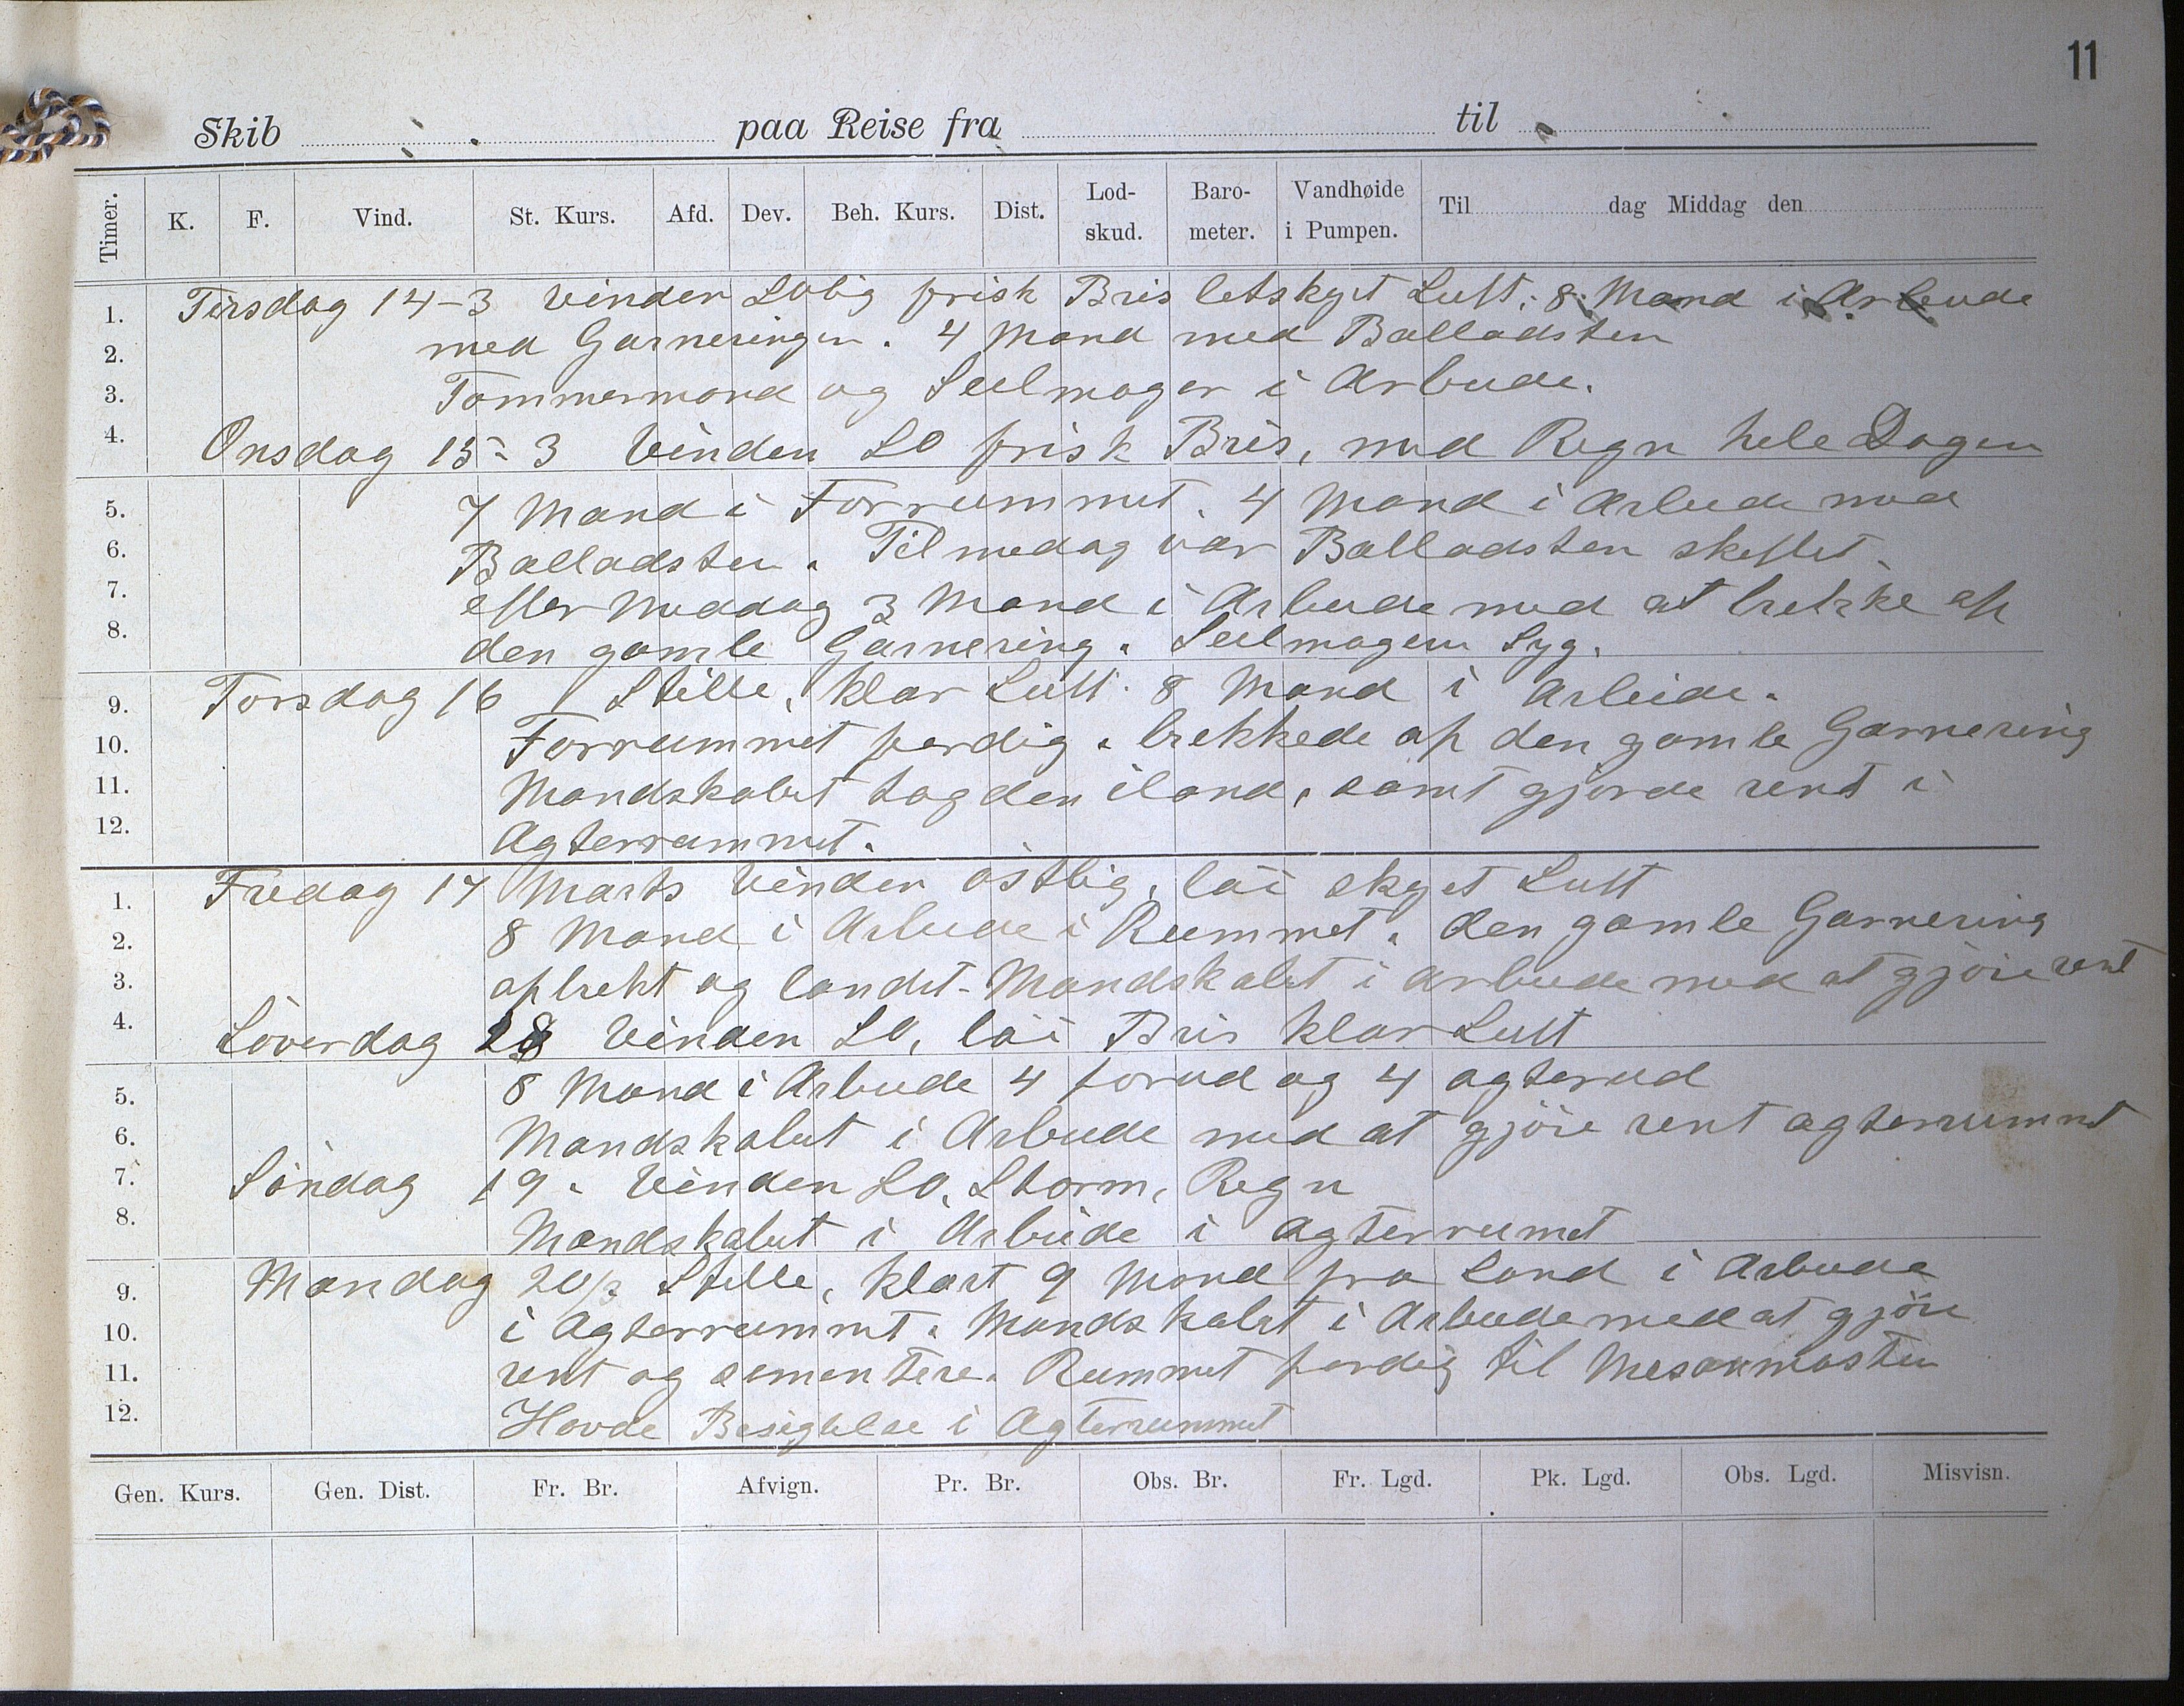 11
Skib paa Reise fra til
Timer. K. F. Vind. St. Kurs. Afd. Dev. Beh. Kurs. Dist. Lod-skud. Baro-meter. Vandhøide i Pumpen. Til dag Middag den
1. Tirsdag 14-3 Vinden SOlig frisk Bris letskyet Luft; 8 Mand i Arbeide
2. med Garneringen. 4 Mand med Balladsten
3. Tømmermand og Seilmager i Arbeide.
4. Onsdag 15-3 Vinden SO frisk Bris, med Regn hele Dagen
5. 7 Mand i Forrummet. 4 Mand i Arbeide med
6. Balladsten. Til medag var Balladsten skeftet
7. efter Meddag 3 Mand i Arbeide med at brekke af
8. den gamle Garnering. Seilmageren Syg.
9. Torsdag 16 Stille, klar Luft. 8 Mand i Arbeide.
10. Forrummet færdig. brekkede af den gamle Garnering
11. Mandskabet tog den iland, samt gjorde rent i
12. Agterrummet.
1. Fredag 17 Marts Vinden östlig, löi skyet Luft
2. 8 Mand i Arbeide i Rummet. den gamle Garnering
3. afbrekt og landet - Mandskabet i arbeide med at gjöre rent
4. Löverdag 18 Vinden SO, löi Bris klar Luft
5. 8 Mand i Arbeide 4 forud og 4 agterud
6. Mandskabet i Arbeide med at gjöre rent agterrummet
7. Söndag 19. Vinden SO. Storm, Regn
8. Mandskabet i Arbeide i Agterrumet
9. Mandag 20/3 Stille, klart 9 Mand fra Land i Arbeide
10. i Agterrummet. Mandskabet i Arbeide med at gjöre
11. rent og sementere. Rummet færdig til Mesanmasten
12. Havde Besigtelse i Agterrummet
Gen. Kurs. Gen. Dist. Fr. Br. Afvign. Pr. Br. Obs. Br. Fr. Lgd. Pk. Lgd. Obs. Lgd. Misvisn.